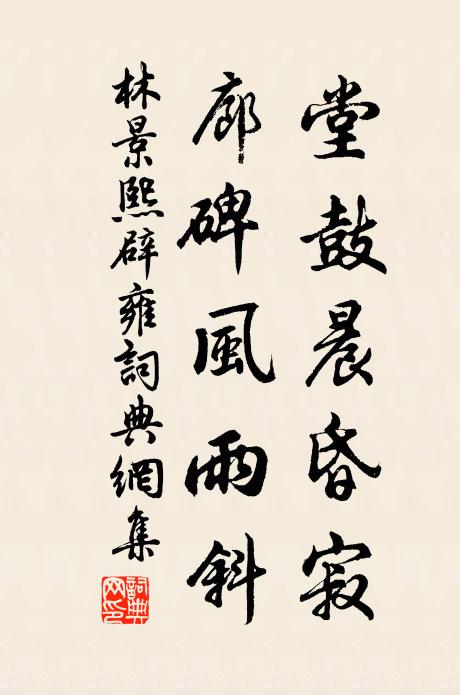 堂鼓晨昏寂
廊碑風雨斜
林景熙辟雍詞典網集
詞典网印